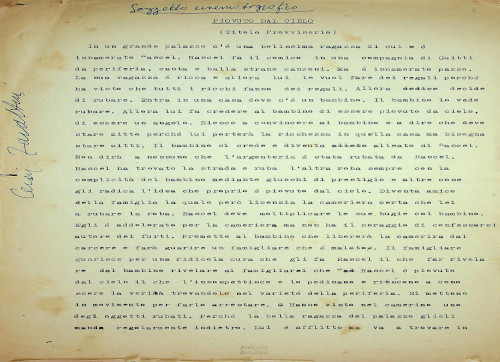 Soggetto cinematografico
PIOVUTO DAL CIELO
(Titolo Provvisorio)
In un grande palazzo c'é una belissima ragazza di cui e é
innamorato "Rascel. Rascel fa il comico in una compagnia di Guitti
da periferia, canta e balla strane canzoni. Ma é innamorato pazzo.
La sua ragazza é ricca e allora lui le vuol fare dei regali perché
ha visto che tutti i ricchi fanno dei regali. Allora decide
di rubare. Entra in una casa dove c'é un bambino. Il bambino lo vede
rubare. Allora lui fa credere al bambino di essere piovuto da cielo,
di essere un angelo. Riesce a convincere al bambino e a dire che deve
stare zitto perché lui porterà la richezza in quella casa ma bisogna
stare zitti. Il bambino ci crede e diventa alleato di Rascel.
Non dirà a nessuno che l'argenteria é stata rubata da Rascel.
Rascel ha trovato la strada e ruba l'altra roba sempre con la
complicità del bambino mediante giuochi di prestigio e altre cose
gli radica l'idea che proprio é piovuto dal cielo. Diventa amico
della famiglia la quale peró licenzia la cameriera certa che lei
a rubare la roba. Rascel deve moltiplicare le sue bugie col bambino.
Egli é addolerato per la cameriera ma non ha il coraggio di confessarsi
autore dei furti. Promette al bambino che libererà la cameriera dal
carcere e farà guarire un famigliare che é malato. Il famigliare
guarisce per una ridicola cura che gli fa Rascel il che far rivela
re dal bambino rivelare ai famigliari che Rascel é piovuto
dal cielo il che l'insospettisce e lo pedinano e riescono a cono
scere la verità trovandolo nel varietà della periferia. Si mettono
in movimento per farlo arrestare. Hanno visto nel camerino uno
degli oggetti rubati. Perché la bella ragazza del palazzo glieli
manda regolarmente indietro. Lui é afflitto ma va a trovare in